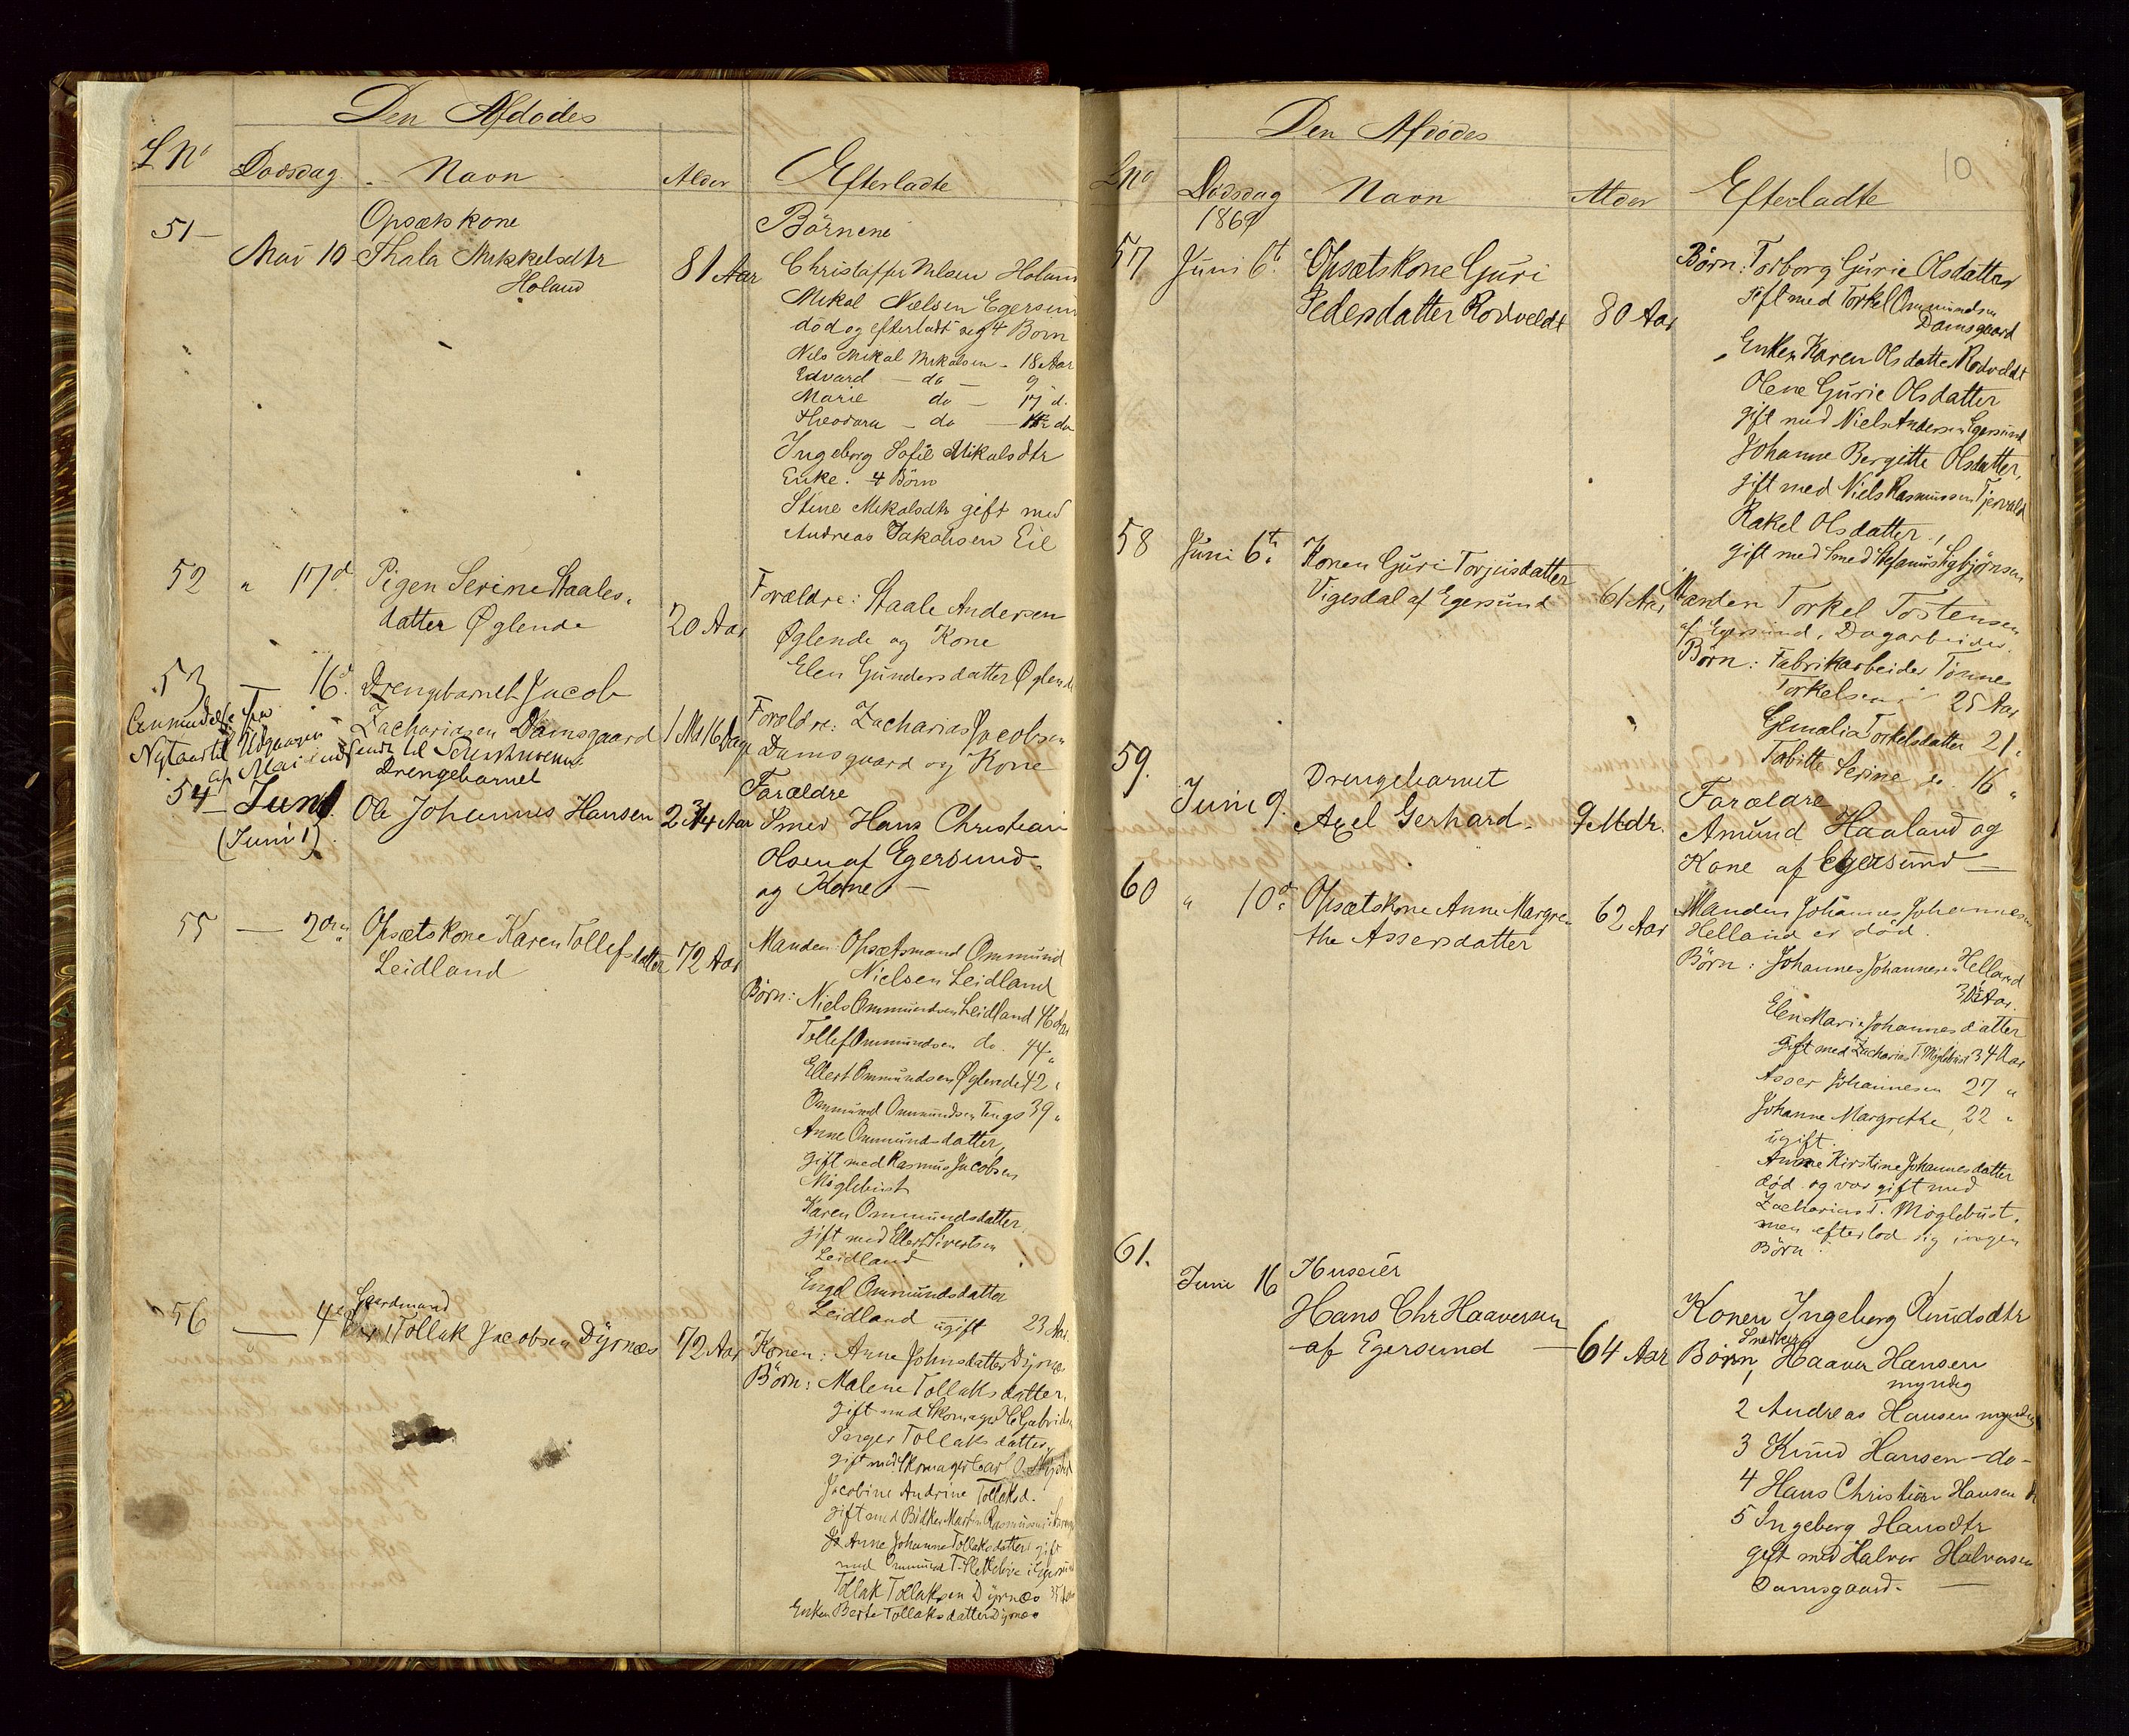 Den Afdödes
L No Dödsdag. Navn Alder Efterladte
51 — Opsætskone Börnene
Mai 10 Thala Mikkelsdtr 81 Aar Christoffer Nilsen Holand
Holand Mikal Nielsen Egersund
död og efterladt sig 4 Börn
Nils Mikal Mikalsen - 18 Aar
Edvard — do — 9
Marie do — 17 d.
Theodora — do —
Ingeborg Sofie Mikalsdtr
Enke. 4 Börn
Stine Mikalsdtr gift med
Andreas Jakobsen Eie
52 " 17d Pigen Serine Staales- 20 Aar Forældre: Staale Andersen
datter Øglende Øglende og Kone
Elen Gundersdatter Øglende
53 16d. Drengebarnet Jacob 1 Md 16 Dage Forældre: Zacharias Jacobsen
Zachariasen Damsgaard Damsgaard og Kone
Anmeldelse fra
Nytaar til Udgangen
af Mai indsendt til Sorenskriveren
54 — Juni 1. Drengebarnet Forældre
(Juni 1) Ole Johannes Hansen 2 3/4 Aar Smed Hans Christian
Olsen af Egersund
og Kone —
55 — 2den Opsætskone Karen Tollefsdatter 72 Aar Manden: Opsætsmand Ommund
Leidland Nielsen Leidland
Börn: Niels Ommundsen Leidland 46 Aar
Tollef Ommundsen do. 44 "
Ellert Ommundsen Øglende 42 "
Ommund Ommundsen Tengs 39 "
Anne Ommundsdatter,
gift med Rasmus Jacobsen
Möglebust
Karen Ommundsdatter
gift med Ellert Sivertsen
Leidland
Engel Ommundsdatter
Leidland ugift 23 Aar.
56 — 4de Gaardmand
Tollak Jacobsen Dyrnæs 72 Aar Konen: Anne Johnsdatter Dyrnæs
Börn: Malene Tollaksdatter,
gift med Skomager H. Gabrielsen
Inger Tollaksdatter,
gift med Skomager Carl O.
Jacobine Andrine Tollaksd.
gift med Bödker Martin Rasmussen i
Anne Johanne Tollaksdatter gift
med Ommund T. i Egersund
Tollak Tollaksen Dyrnæs
Enken Berte Tollaksdatter Dyrnæs
Den Afdödes
10
L No Dödsdag Navn Alder Efterladte
1869
57 Juni 6t. Opsætskone Guri 80 Aar Börn: Torborg Gurie Olsdatter
Pedersdatter Rodveldt gift med Torkel Ommundsen
Damsgaard
Enken Karen Olsdatter Rodveldt
Olene Gurie Olsdatter
gift med Niels Andersen Egersund
Johanne Bergitte Olsdatter,
gift med Niels Rasmussen Tjorvald
Rakel Olsdatter,
gift med Smed Stefanus Sigbjørnsen
58 Juni 6te. Konen Guri Torjusdatter 61 Aar Manden Torkel Tostensen
Vigesdal af Egersund af Egersund, Dagarbeider.
Börn: Fabrikarbeider Tönnes
Torkelsen 25 Aar
Gemalia Torkelsdatter 21 "
Tabitte Serine do. 16 "
59. Juni 9. Drengebarnet Forældre
Axel Gerhard - 9 Mdr. Amund Haaland og
Kone af Egersund —
60 " 10d. Opsætskone Anne Margre- 62 Aar Manden Johannes Johannesen
the Assersdatter Helland er död.
Börn: Johannes Johannesen Helland
Aar.
Elen Marie Johannesdatter
gift med Zacharias T. Möglebust 34 Aar
Asser Johannesen 27 "
Johanne Margrethe, 22 "
ugift.
Anne Kirstine Johannesdatter
död og var gift med
Zacharias T. Möglebust,
men efterlod sig ingen
Börn.
61. Juni 16 Huseier
Hans Chr Haaversen Konen Ingeberg Knudsdtr
af Egersund — 64 Aar Snedker
Börn, 1 Haaver Hansen
myndig
2 Andreas Hansen myndig
3 Knud Hansen - do -
4 Hans Christian Hansen
5 Ingeberg Hansdtr
gift med Halvor Halvorsen
Damsgaard. —